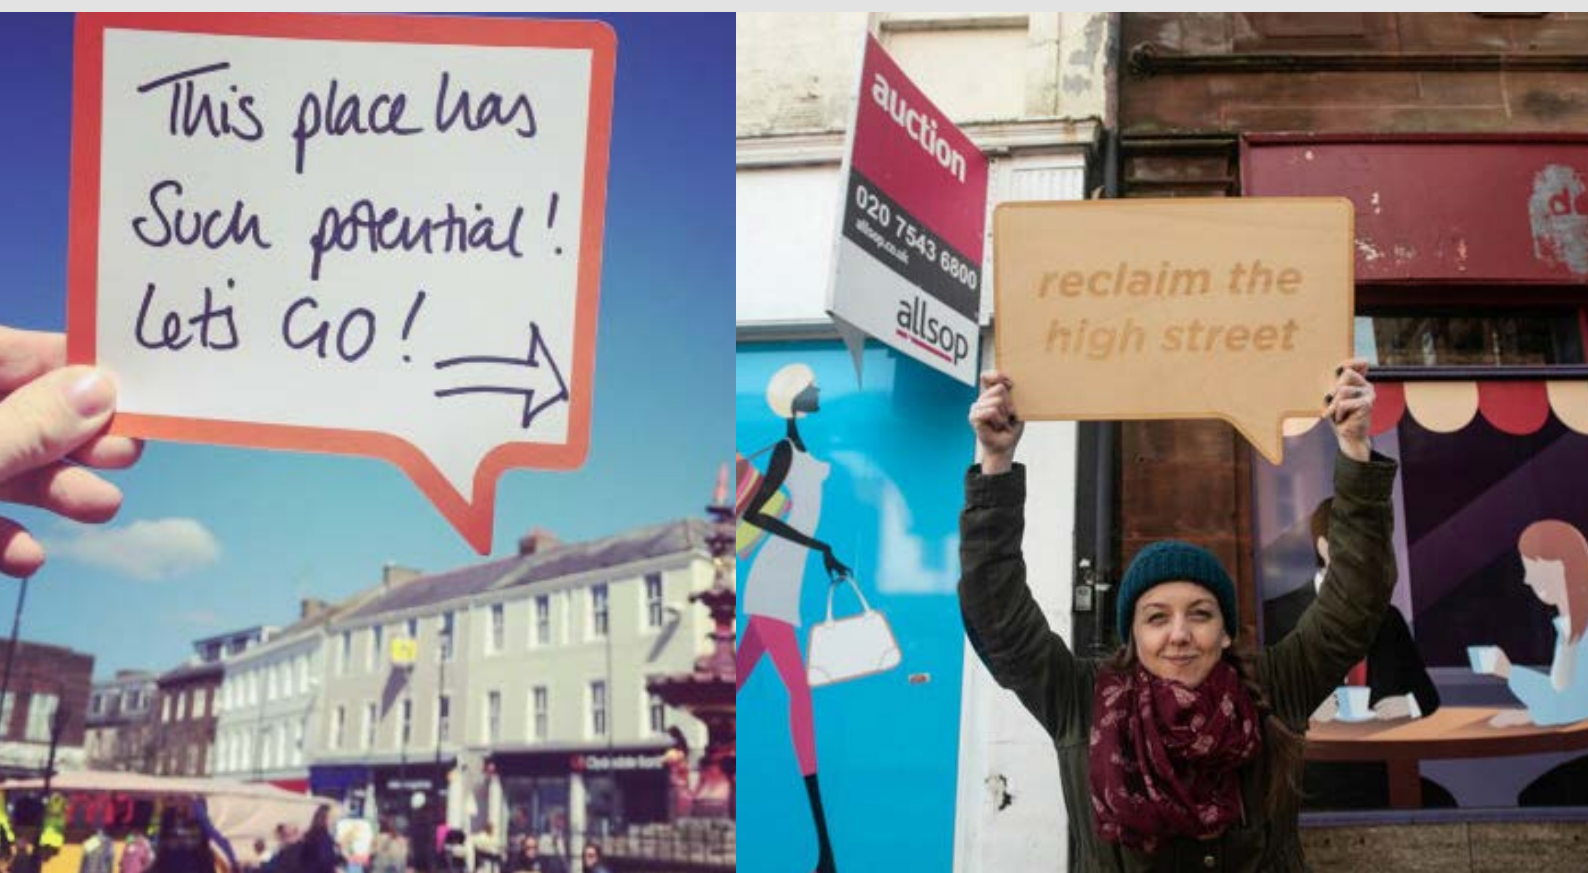 This place has
Such potential!
Let's GO!
auction
020 7543 6800
allsop.co.uk
allsop
reclaim the
high street